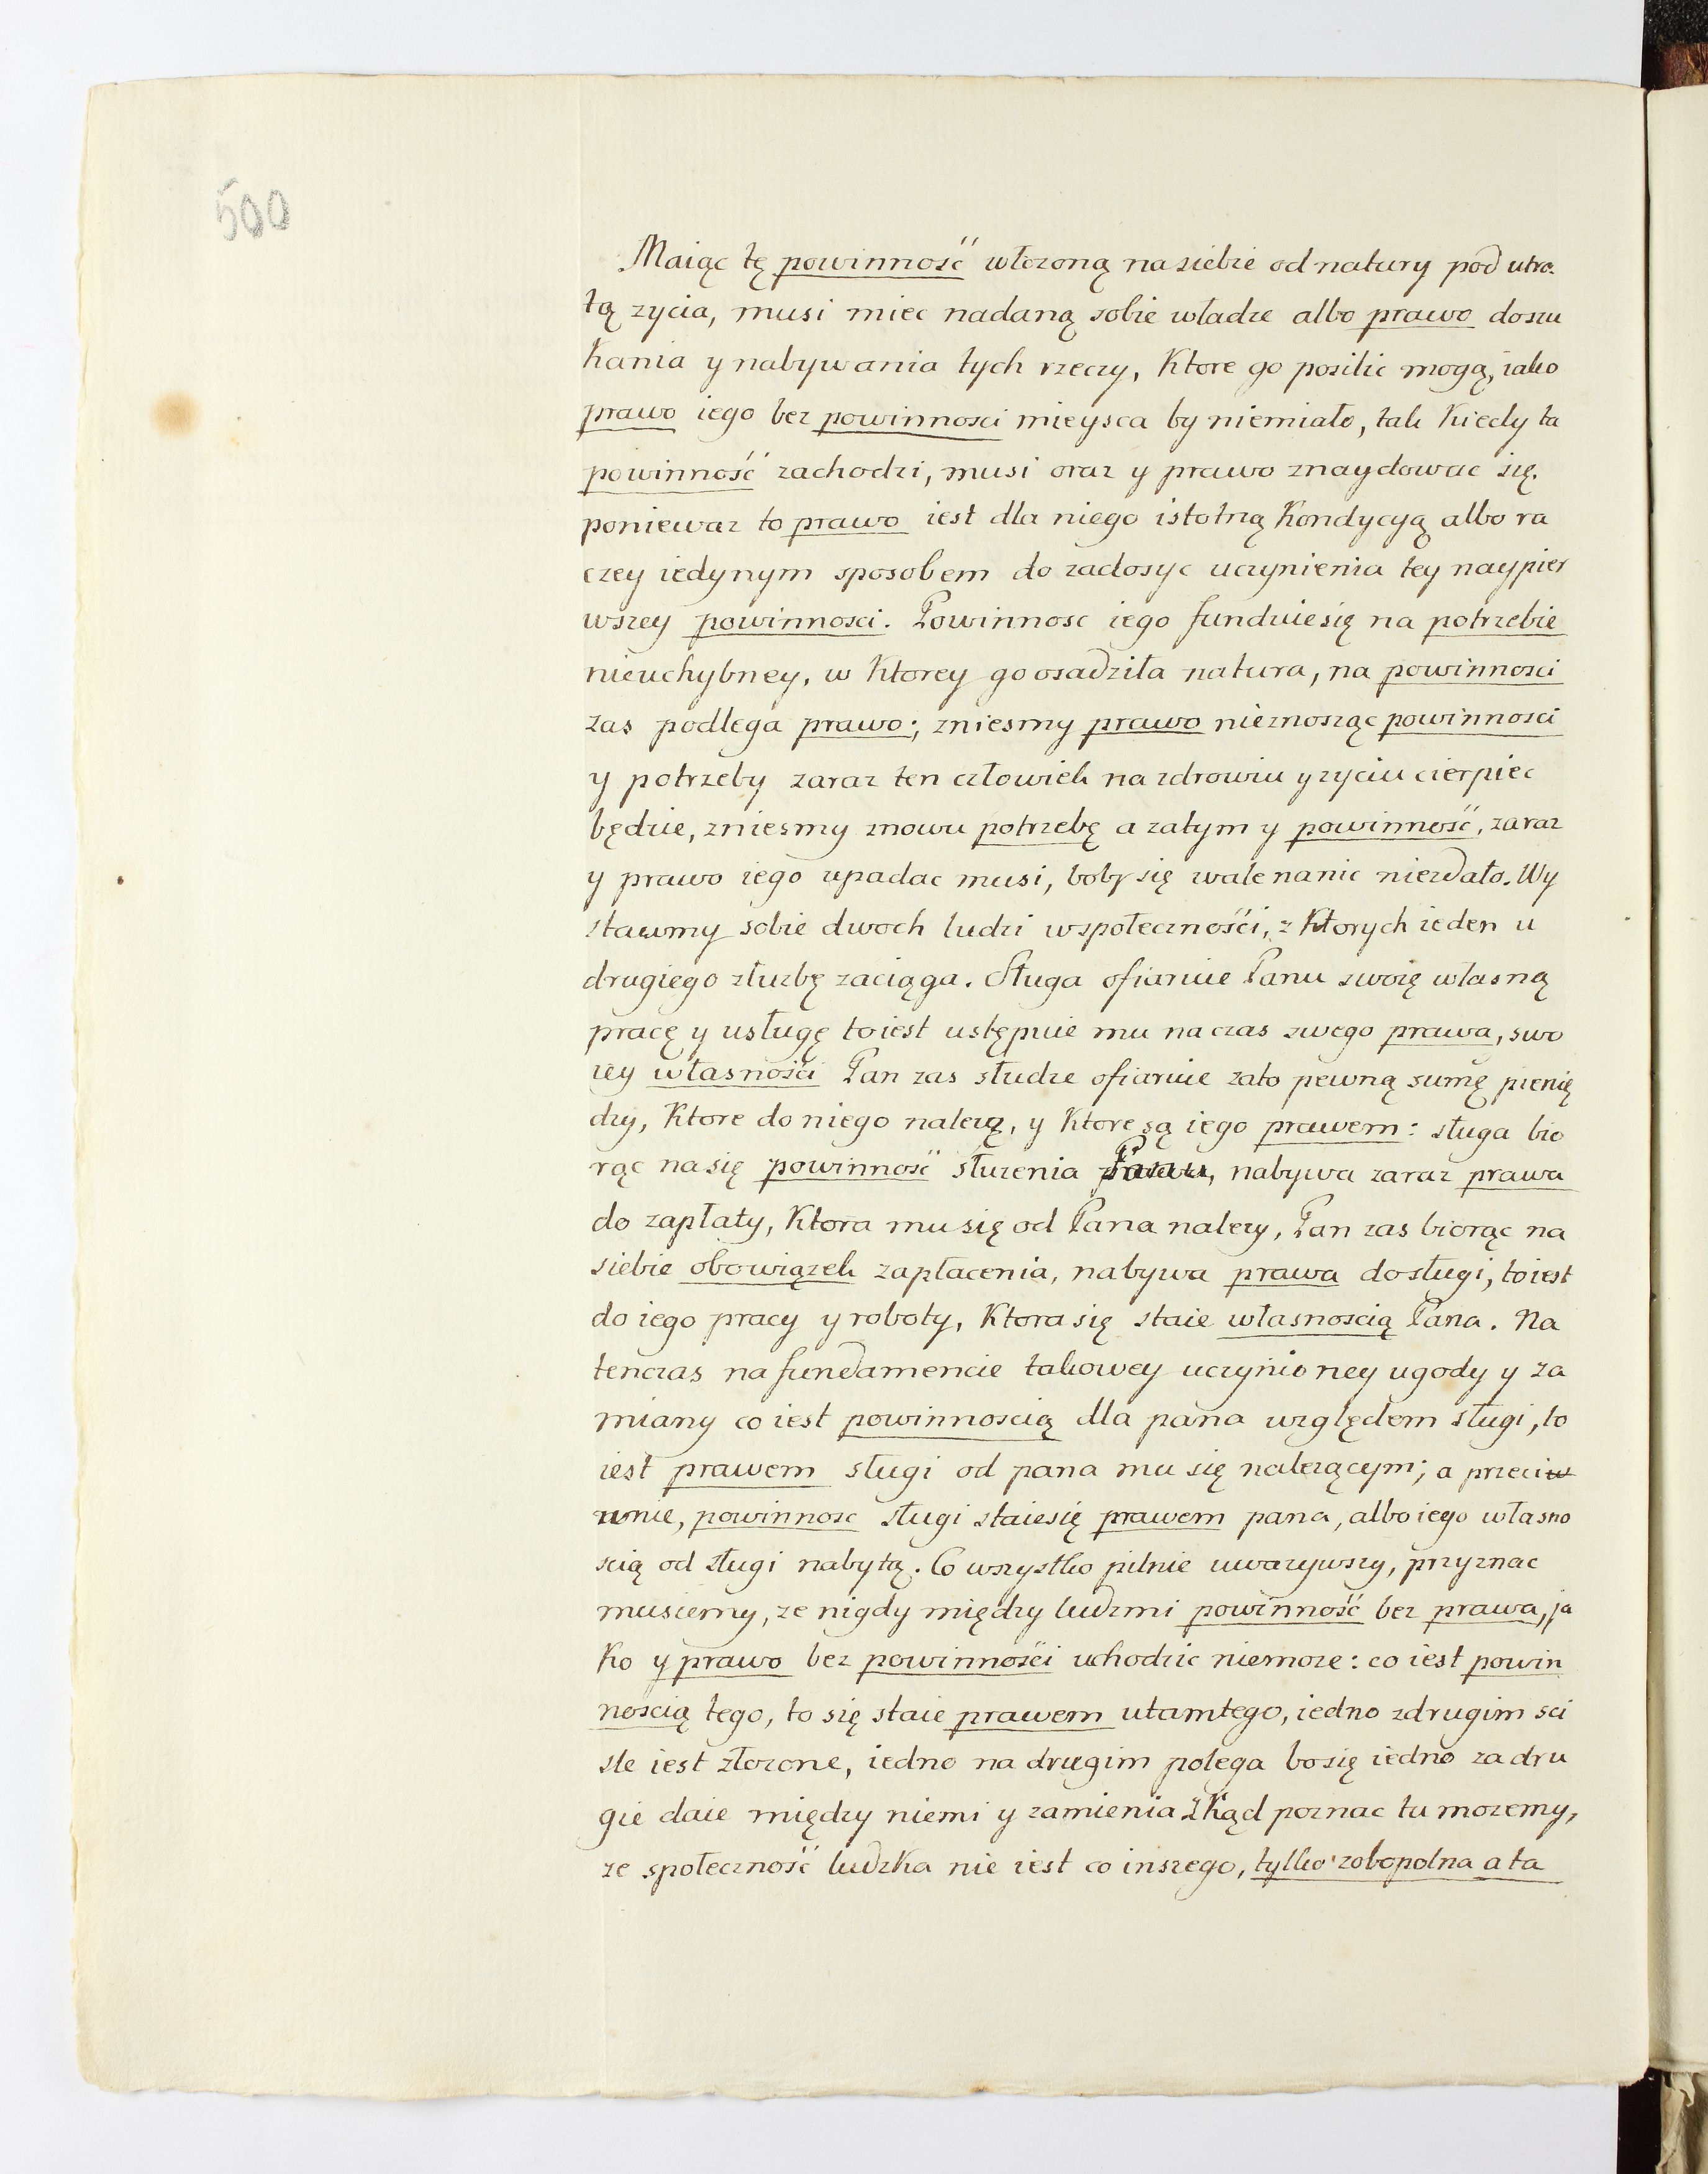 500
Maiąc tę powinność włozoną na siebie od natury pod utra
tą zycia, musi miec nadaną sobie władze albo prawo doszu
kania y nabywania tych rzeczy, Ktore go posilic mogą, iako
prawo iego bez powinnosci mieysca by niemiało, tak Kiedy ta
powinność zachodzi, musi oraz y prawo znaydowac się.
poniewaz to prawo iest dla niego istotną Kondycyą albo ra
czey iedynym sposobem do zadosyc uczynienia tey naypier
wszey powinnosci. Powinnosc iego funduie się na potrzebie
nieuchybney, w Ktorey go osadziła natura, na powinnosci
zas podlega prawo; zniesmy prawo nieznosząc powinnosci
y potrzeby zaraz ten człowiek na zdrowiu y zyciu cierpiec
będzie, zniesmy znowu potrzebę a zatym y powinność, zaraz
y prawo iego upadac musi, boby się wale nanic niezdało. Wy
stawmy sobie dwoch ludzi wspołecznośći, z Ktorych ieden u
drugiego złuzbę zaciąga. Sługa ofiaruie Panu swoię własną
pracę y usługę toiest ustępuie mu na czas swego prawa, swo
iey własnośći Pan zas słudze ofiaruie zato pewną sumę pienię
dzy, Ktore do niego nalezą, y Ktore są iego prawem: sługa bio
rąc na się powinność słuzenia Panu, nabywa zaraz prawa
do zapłaty, Ktora mu się od Pana nalezy, Pan zas biorąc na
siebie obowiązek zapłacenia, nabywa prawa do sługi, toiest
do iego pracy y roboty, Ktora się staie własnoscią Pana. Na
tenczas na fundamencie takowey uczynioney ugody y za
miany co iest powinnoscią dla pana względem sługi, to
iest prawem sługi od pana mu się nalezącym; a przeciw
wnie, powinnosc sługi staie się prawem pana, albo iego własno
scią od sługi nabytą. Co wszystko pilnie uwazywszy, przyznac
musiemy, ze nigdy między ludzmi powinność bez prawa, ja
ko y prawo bez powinnośći uchodzic niemoze: co iest powin
noscią tego, to się staie prawem utamtego, iedno zdrugim sci
sle iest złozone, iedno na drugim polega bosię iedno za dru
gie daie między niemi y zamienia Zkąd poznac tu mozemy,
ze społeczność ludzka nie iest co inszego, tylko zobopolna a ta